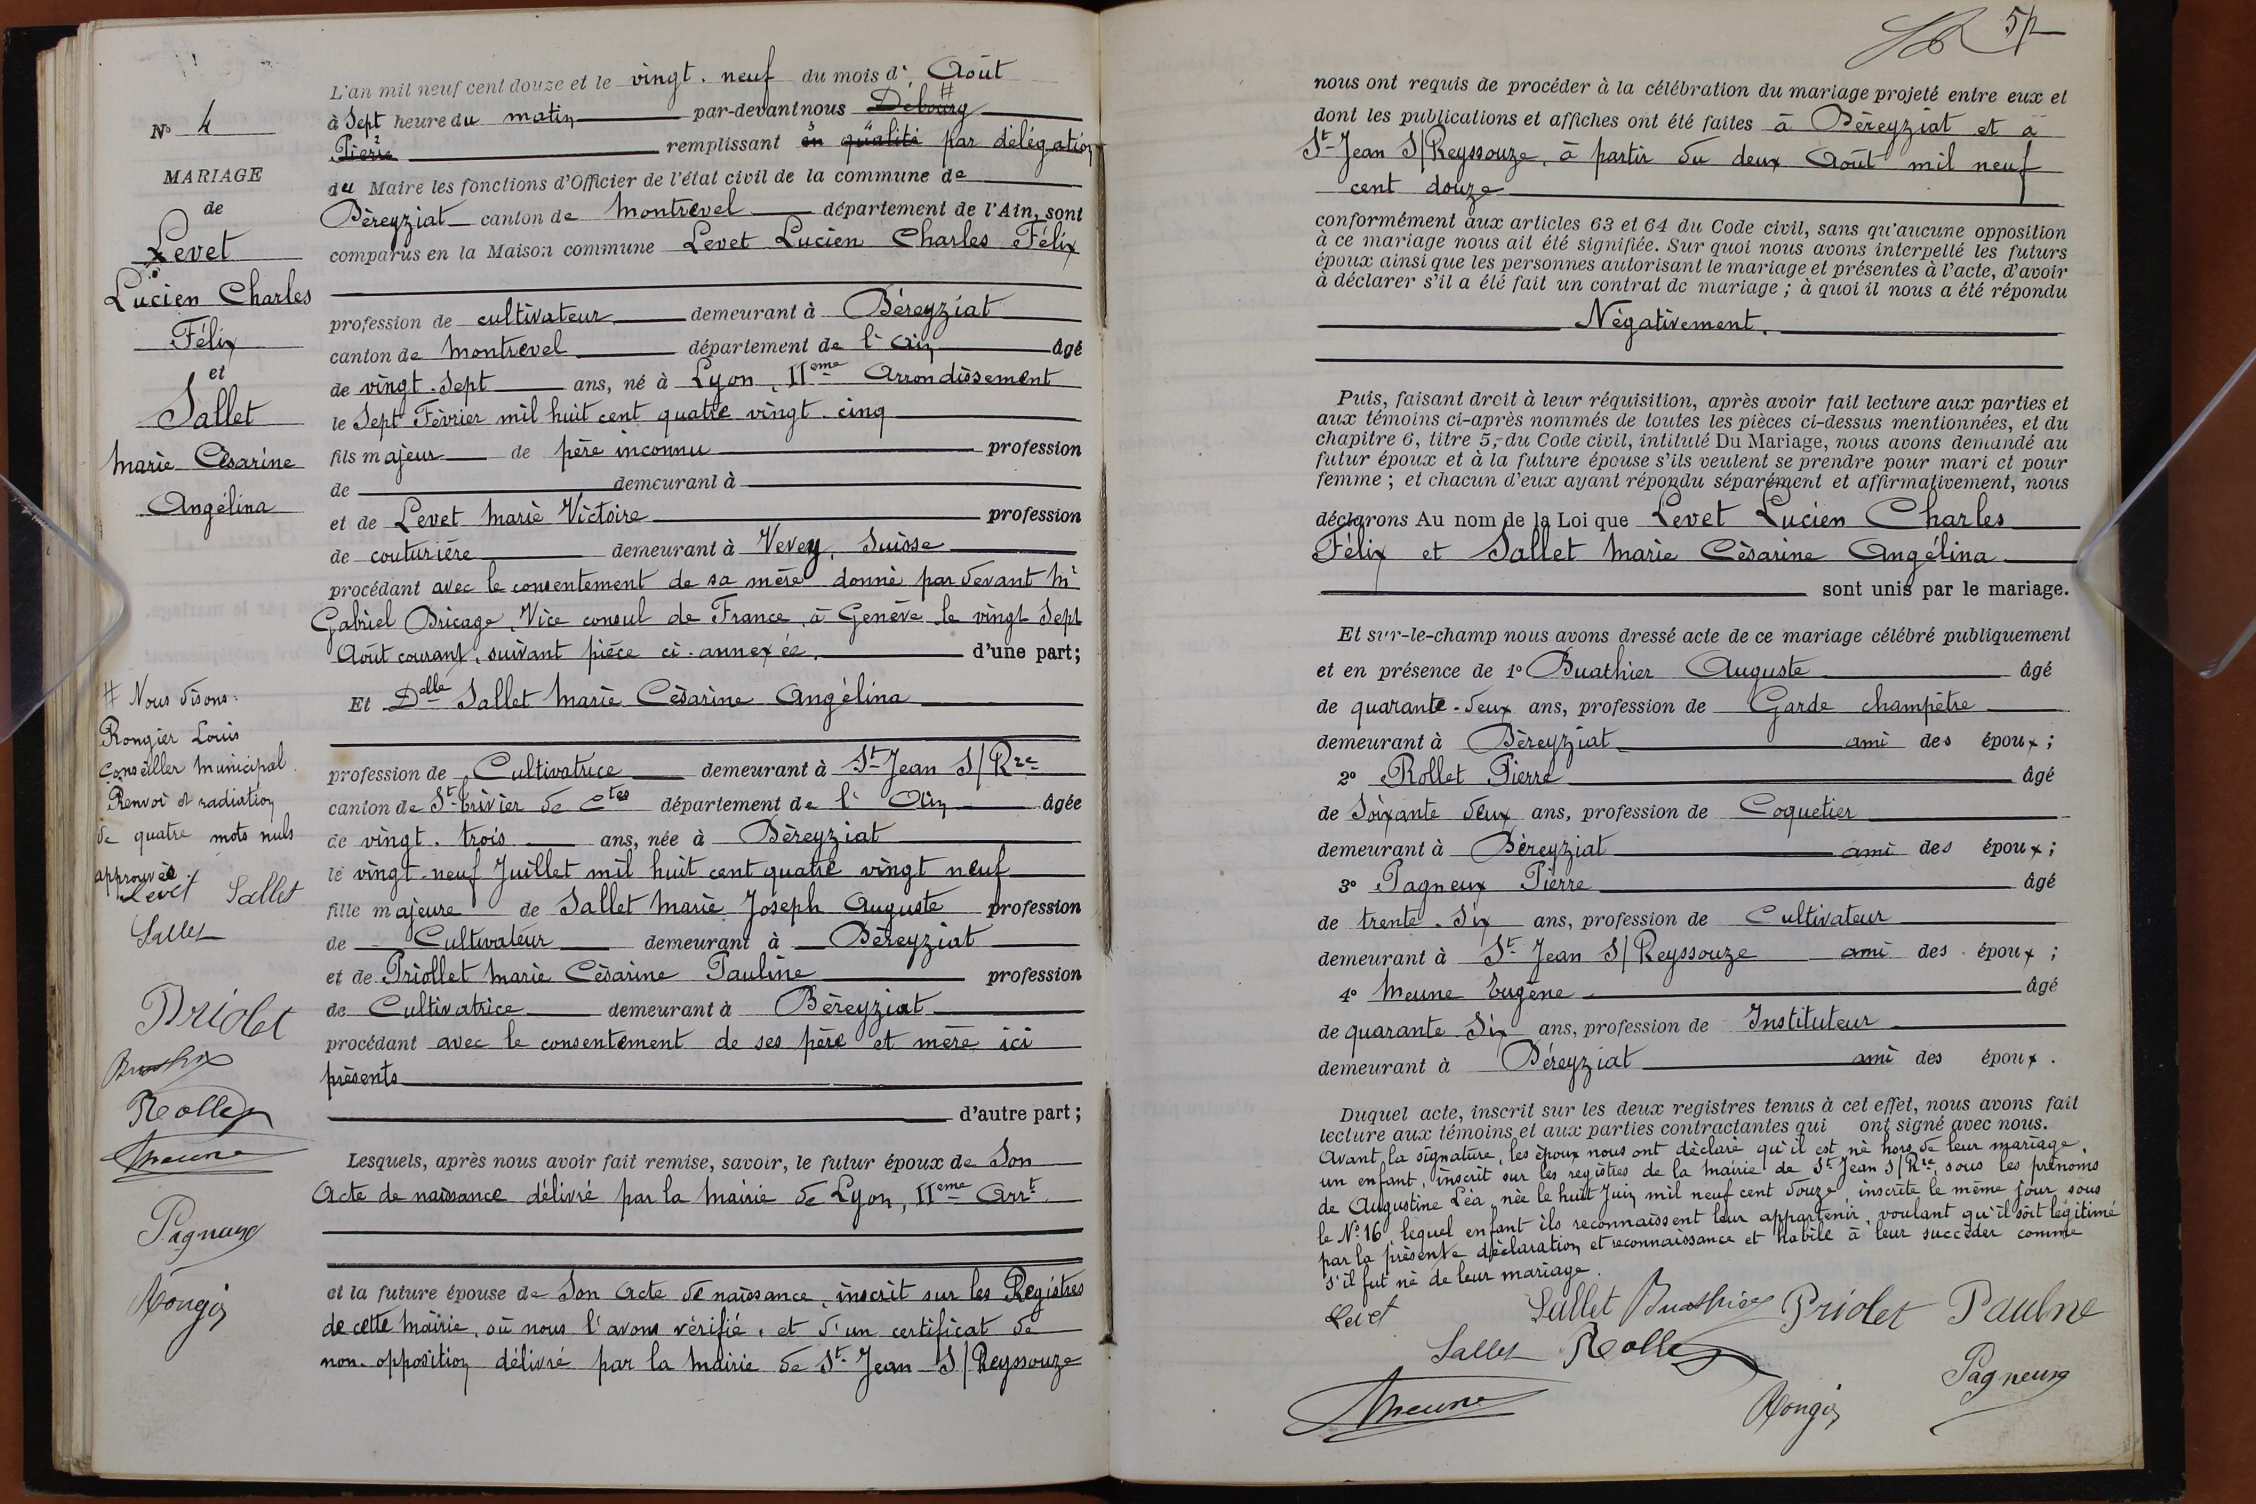 N° 4
MARIAGE
de
Levet
Lucien Charles
Félix
et
Sallet
Marie Césarine
Angélina
# Nous disons:
Rongier Louis
Conseiller Municipal.
Renvoi et radiation
de quatre mots nuls
approuvés.
Levet Sallet
Sallet
Priolet
Buathier
Rollet
Meune
Pagneux
Rongier
L'an mil neuf cent douze et le vingt-neuf du mois d' Août
à Sept heure du matin par-devant nous Debourg #
Pierre remplissant en qualité par délégation
du Maire les fonctions d'Officier de l'état civil de la commune de
Béreyziat canton de Montrevel département de l'Ain, sont
comparus en la Maison commune Levet Lucien Charles Félix
profession de cultivateur demeurant à Béreyziat
canton de Montrevel département de l'Ain âgé
de vingt-sept ans, né à Lyon, IIeme Arrondissement
le Sept Février mil huit cent quatre vingt-cinq
fils majeur de père inconnu profession
de demeurant à
et de Levet Marie Victoire profession
de couturière demeurant à Vevey, Suisse
procédant avec le consentement de sa mère donné par devant Mr
Gabriel Bricage, Vice consul de France, à Genève le vingt Sept
Août courant, suivant pièce ci-annexée. d'une part;
Et Dalle Sallet Marie Césarine Angélina
profession de Cultivatrice demeurant à St Jean S/Rze
canton de St Trivier de Ctes département de l'Ain âgée
de vingt-trois ans, née à Béreyziat
le vingt-neuf Juillet mil huit cent quatre vingt neuf
fille majeure de Sallet Marie Joseph Auguste profession
de Cultivateur demeurant à Béreyziat
et de Priollet Marie Césarine Pauline profession
de Cultivatrice demeurant à Béreyziat
procédant avec le consentement de ses père et mère ici
présents
d'autre part;
Lesquels, après nous avoir fait remise, savoir, le futur époux de Son
Acte de naissance délivré par la Mairie de Lyon, IIeme Arrt.
et la future épouse de Son Acte de naissance, inscrit sur les Registres
de cette Mairie, où nous l'avons vérifié, et d'un certificat de
non-opposition délivré par la Mairie de St Jean S/Reyssouze
52
nous ont requis de procéder à la célébration du mariage projeté entre eux et
dont les publications et affiches ont été faites à Béreyziat et à
St Jean S/Reyssouze, à partir du deux Août mil neuf
cent douze
conformément aux articles 63 et 64 du Code civil, sans qu'aucune opposition
à ce mariage nous ait été signifiée. Sur quoi nous avons interpellé les futurs
époux ainsi que les personnes autorisant le mariage et présentes à l'acte, d'avoir
à déclarer s'il a été fait un contrat de mariage; à quoi il nous a été répondu
Négativement.
Puis, faisant droit à leur réquisition, après avoir fait lecture aux parties et
aux témoins ci-après nommés de toutes les pièces ci-dessus mentionnées, et du
chapitre 6, titre 5, du Code civil, intitulé Du Mariage, nous avons demandé au
futur époux et à la future épouse s'ils veulent se prendre pour mari et pour
femme; et chacun d'eux ayant répondu séparément et affirmativement, nous
déclarons Au nom de la Loi que Levet Lucien Charles
Félix et Sallet Marie Césarine Angélina
sont unis par le mariage.
Et sur-le-champ nous avons dressé acte de ce mariage célébré publiquement
et en présence de 1° Buathier Auguste âgé
de quarante-deux ans, profession de Garde champêtre
demeurant à Béreyziat ami des époux;
2° Rollet Pierre âgé
de Soixante deux ans, profession de Coquetier
demeurant à Béreyziat ami des époux;
3° Pagneux Pierre âgé
de trente-Six ans, profession de Cultivateur
demeurant à St Jean S/Reyssouze ami des époux;
4° Meune Eugène âgé
de quarante Six ans, profession de Instituteur
demeurant à Béreyziat ami des époux.
Duquel acte, inscrit sur les deux registres tenus à cet effet, nous avons fait
lecture aux témoins et aux parties contractantes qui ont signé avec nous.
Avant la signature, les époux nous ont déclaré qu'il est né hors de leur mariage
un enfant, inscrit sur les registres de la mairie de St Jean S/Rze, sous les prénoms
de Augustine Léa, née le huit Juin mil neuf cent douze, inscrite le même jour sous
le N° 16, lequel enfant ils reconnaissent leur appartenir, voulant qu'il soit légitimé
par la présente déclaration et reconnaissance et habile à leur succéder comme
s'il fut né de leur mariage.
Levet Sallet Buathier Priolet Pauline
Sallet Rollet
Pagneux
Meune Rongier